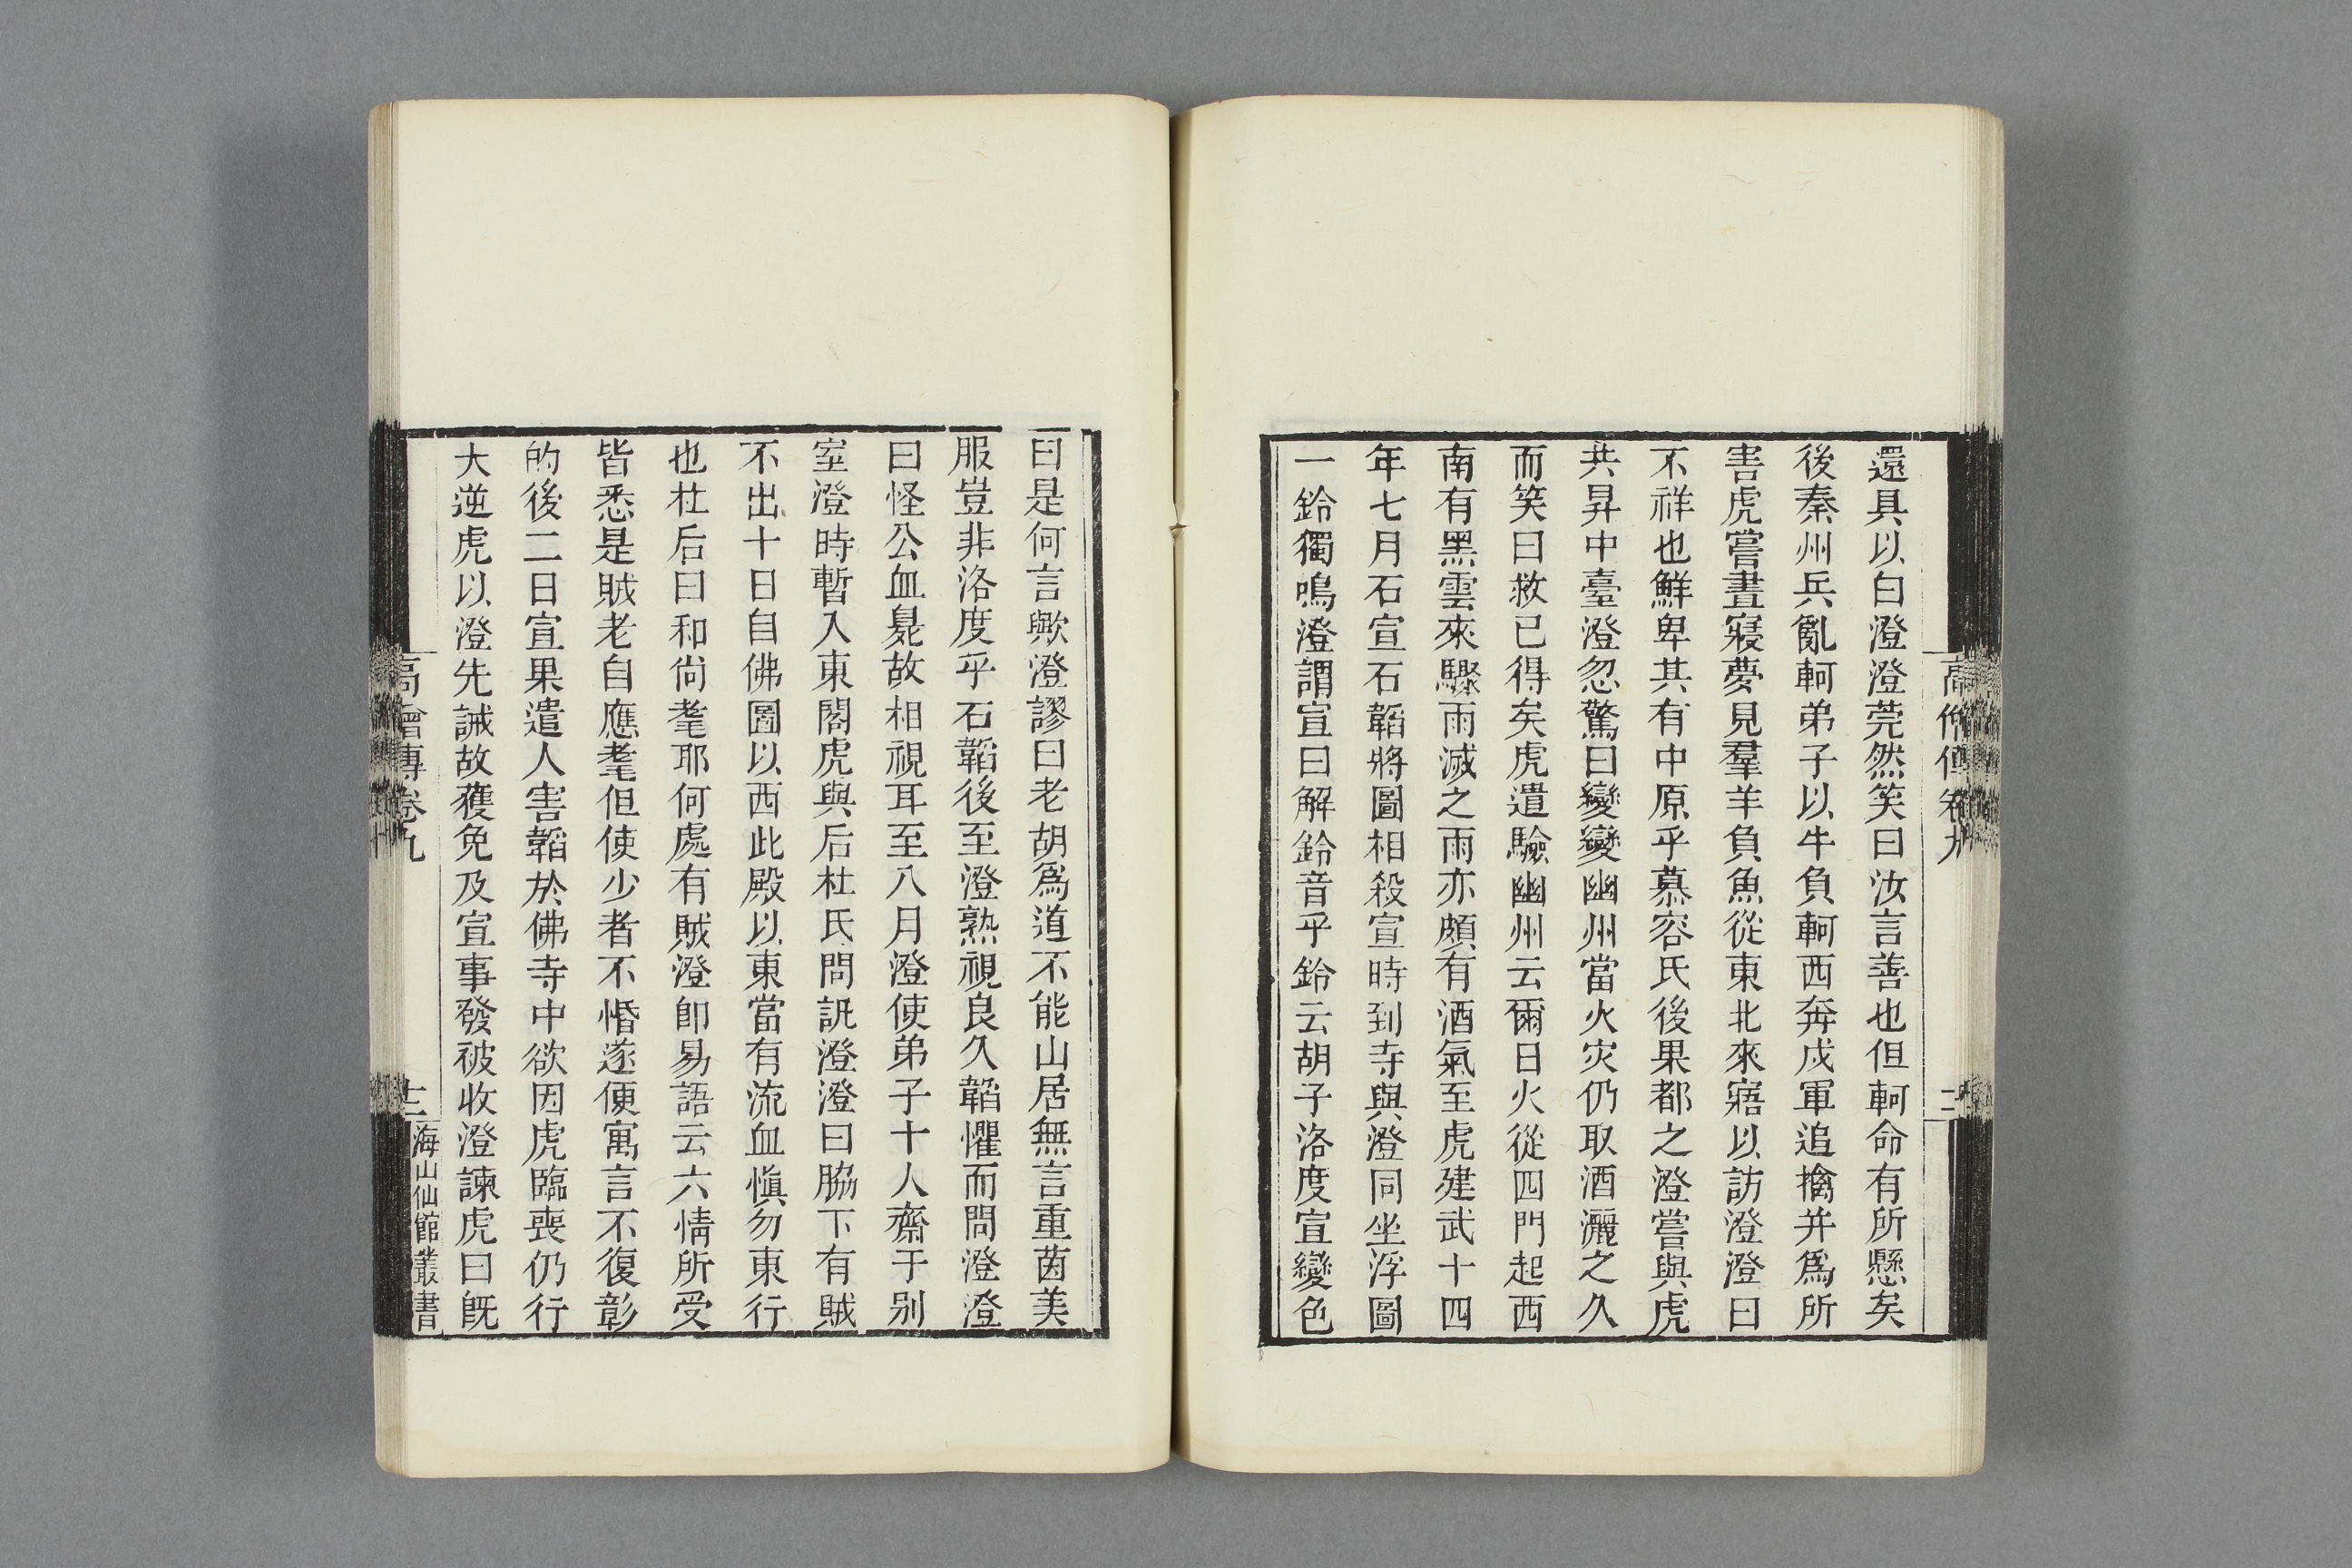 還具以白澄澄莞然笑曰汝言善也但軻命有所懸矣
後秦州兵亂軻弟子以牛負軻西奔戍軍追擒并爲所
害虎嘗晝寢夢見羣羊負魚從東北來寤以訪澄澄曰
不祥也鮮卑其有中原乎慕容氏後果都之澄嘗與虎
共昇中臺澄忽驚曰變變幽州當火灾仍取酒灑之久
而笑曰救已得矣虎遣驗幽州云爾日火從四門起西
南有黑雲來驟雨滅之雨亦頗有酒氣至虎建武十四
年七月石宣石韜將圖相殺宣時到寺與澄同坐浮圖
一鈴獨鳴澄謂宣曰解鈴音乎鈴云胡子洛度宣變色
曰是何言歟澄謬曰老胡爲道不能山居無言重茵美
服豈非洛度乎石韜後至澄熟視良久韜懼而問澄澄
曰怪公血臰故相視耳至八月澄使弟子十人齋于别
室澄時暫入東閣虎與后杜氏問訊澄澄曰脇下有賊
不出十日自佛圖以西此殿以東當有流血愼勿東行
也杜后曰和尙耄耶何處有賊澄卽易語云六情所受
皆悉是賊老自應耄但使少者不惛遂便寓言不復彰
的後二日宣果遣人害韜於佛寺中欲因虎臨喪仍行
大逆虎以澄先誡故獲免及宣事發被收澄諫虎曰旣
高僧傳卷九
海山仙館叢書